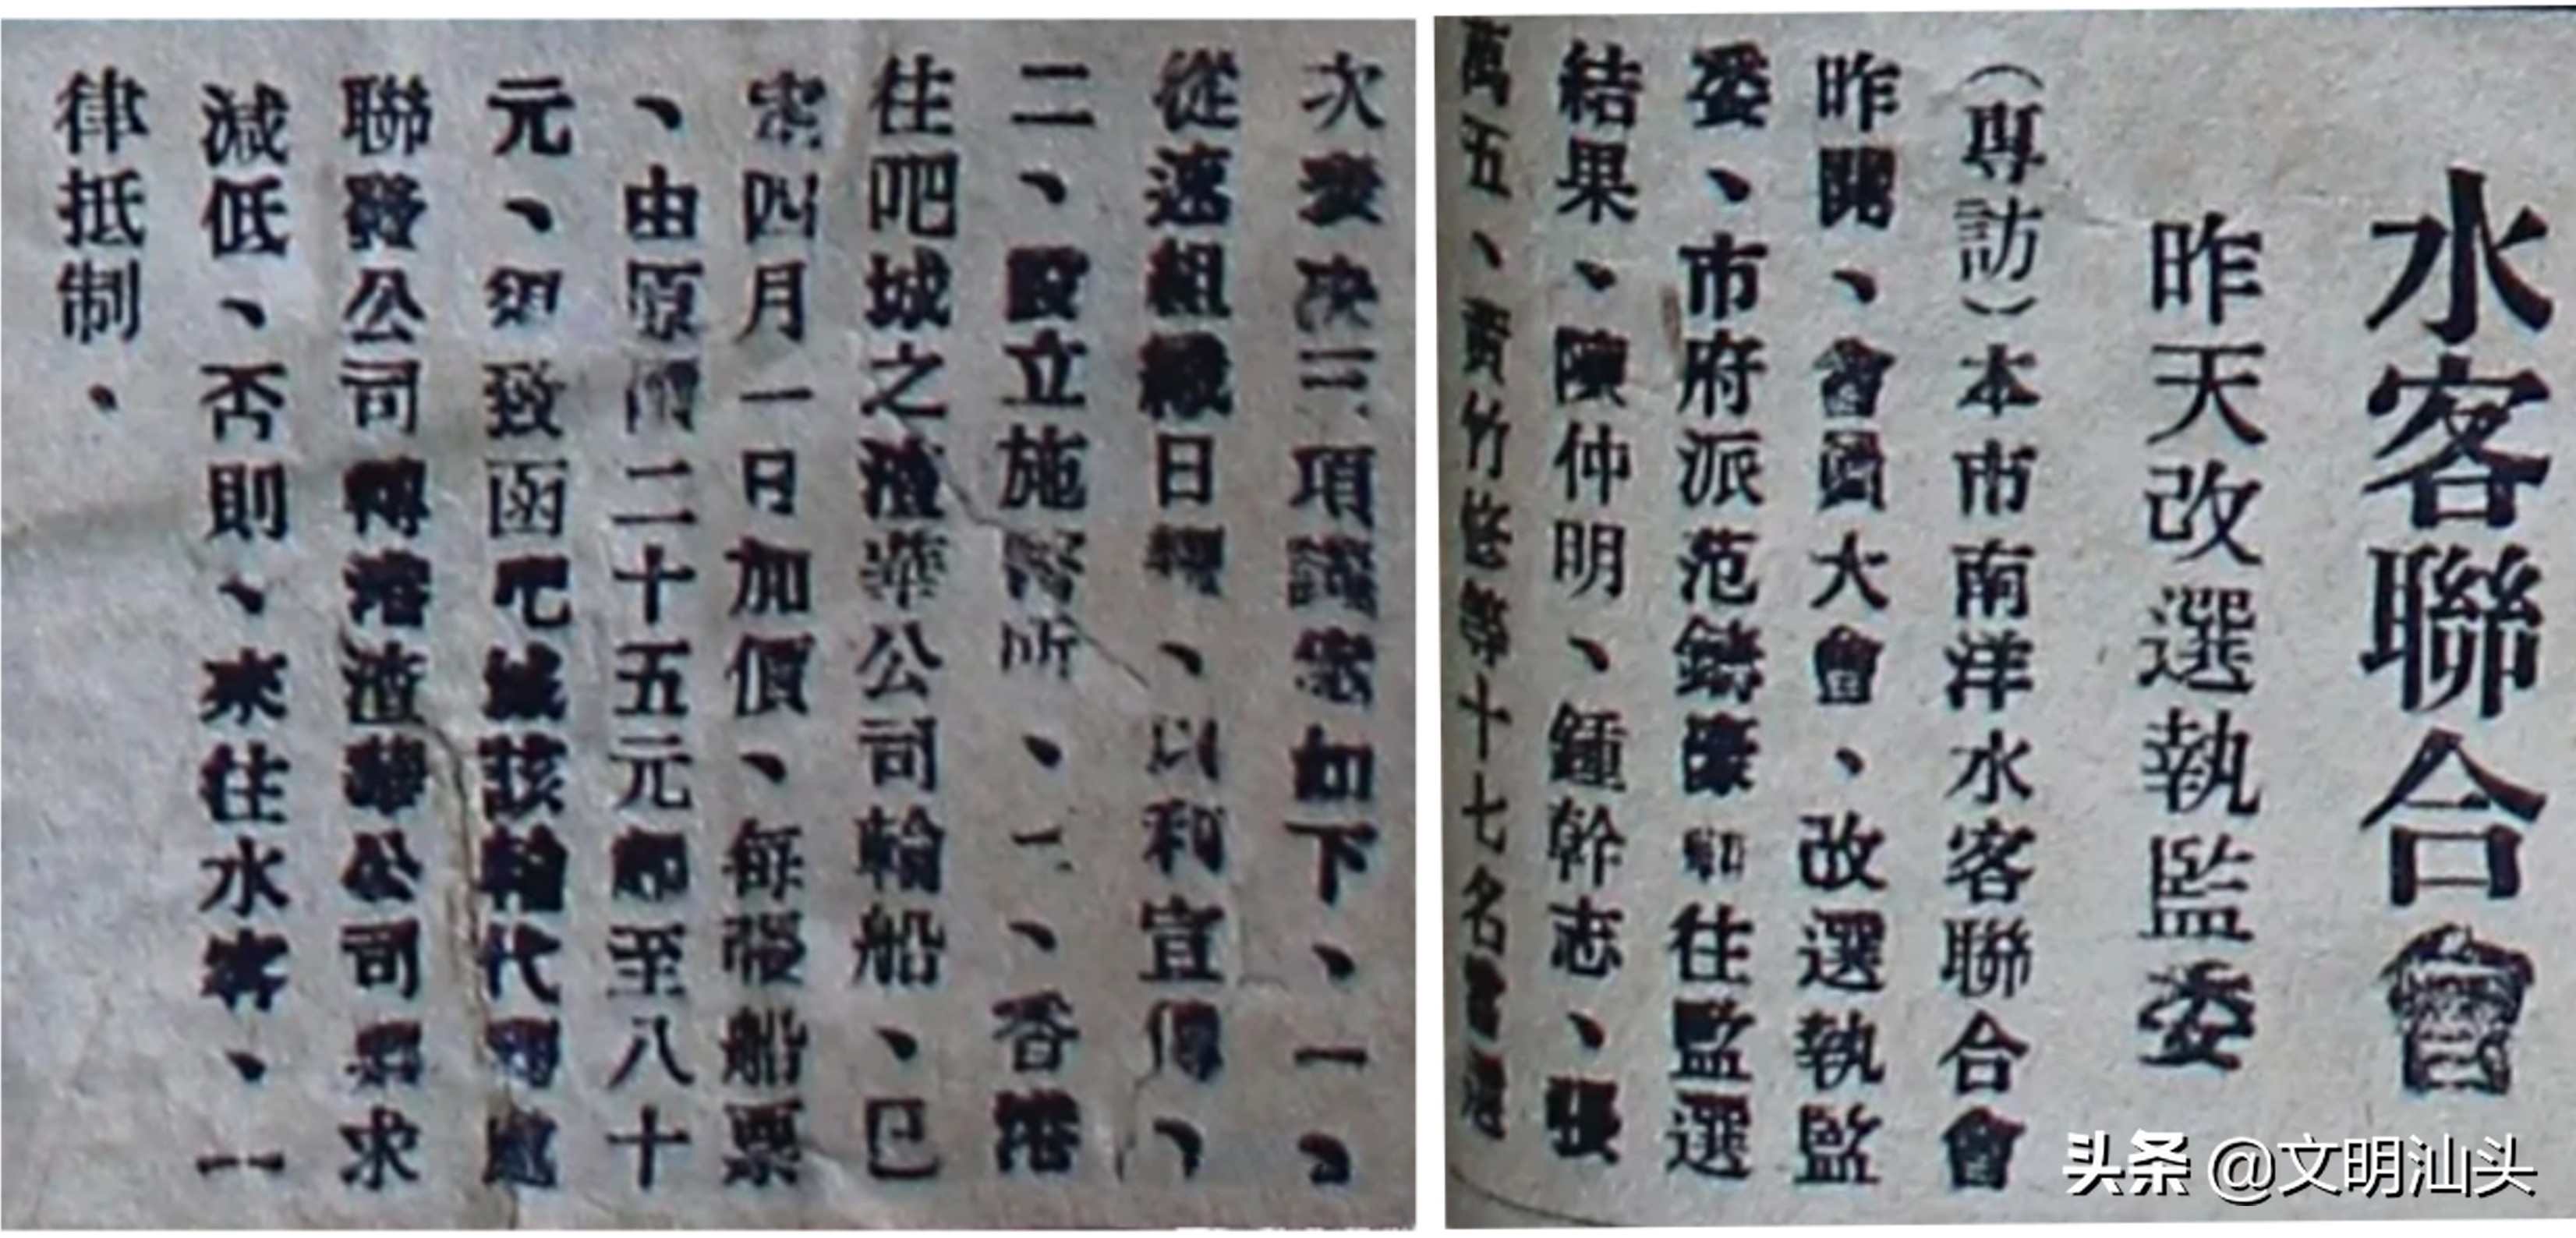 水客聯合會
昨天改選執監委
（專訪）本市南洋水客聯合會
昨開、會員大會、改選執監
委、市府派范錡 往監選
結果、陳仲明、鍾幹志、張
萬五、黃竹 等十七名當選
次表決三項議案如下、一、
從速組織日報、以利宣傳、
二、設立施醫所、三、香港
往吧城之渣華公司輪船、已
四月一日加價、每張船票
、由原價二十五元 至八十
元、 致函吧城該輪代理處
聯發公司轉渣華公司要求
減低、否則、來往水客、一
律抵制、
头条 @文明汕头